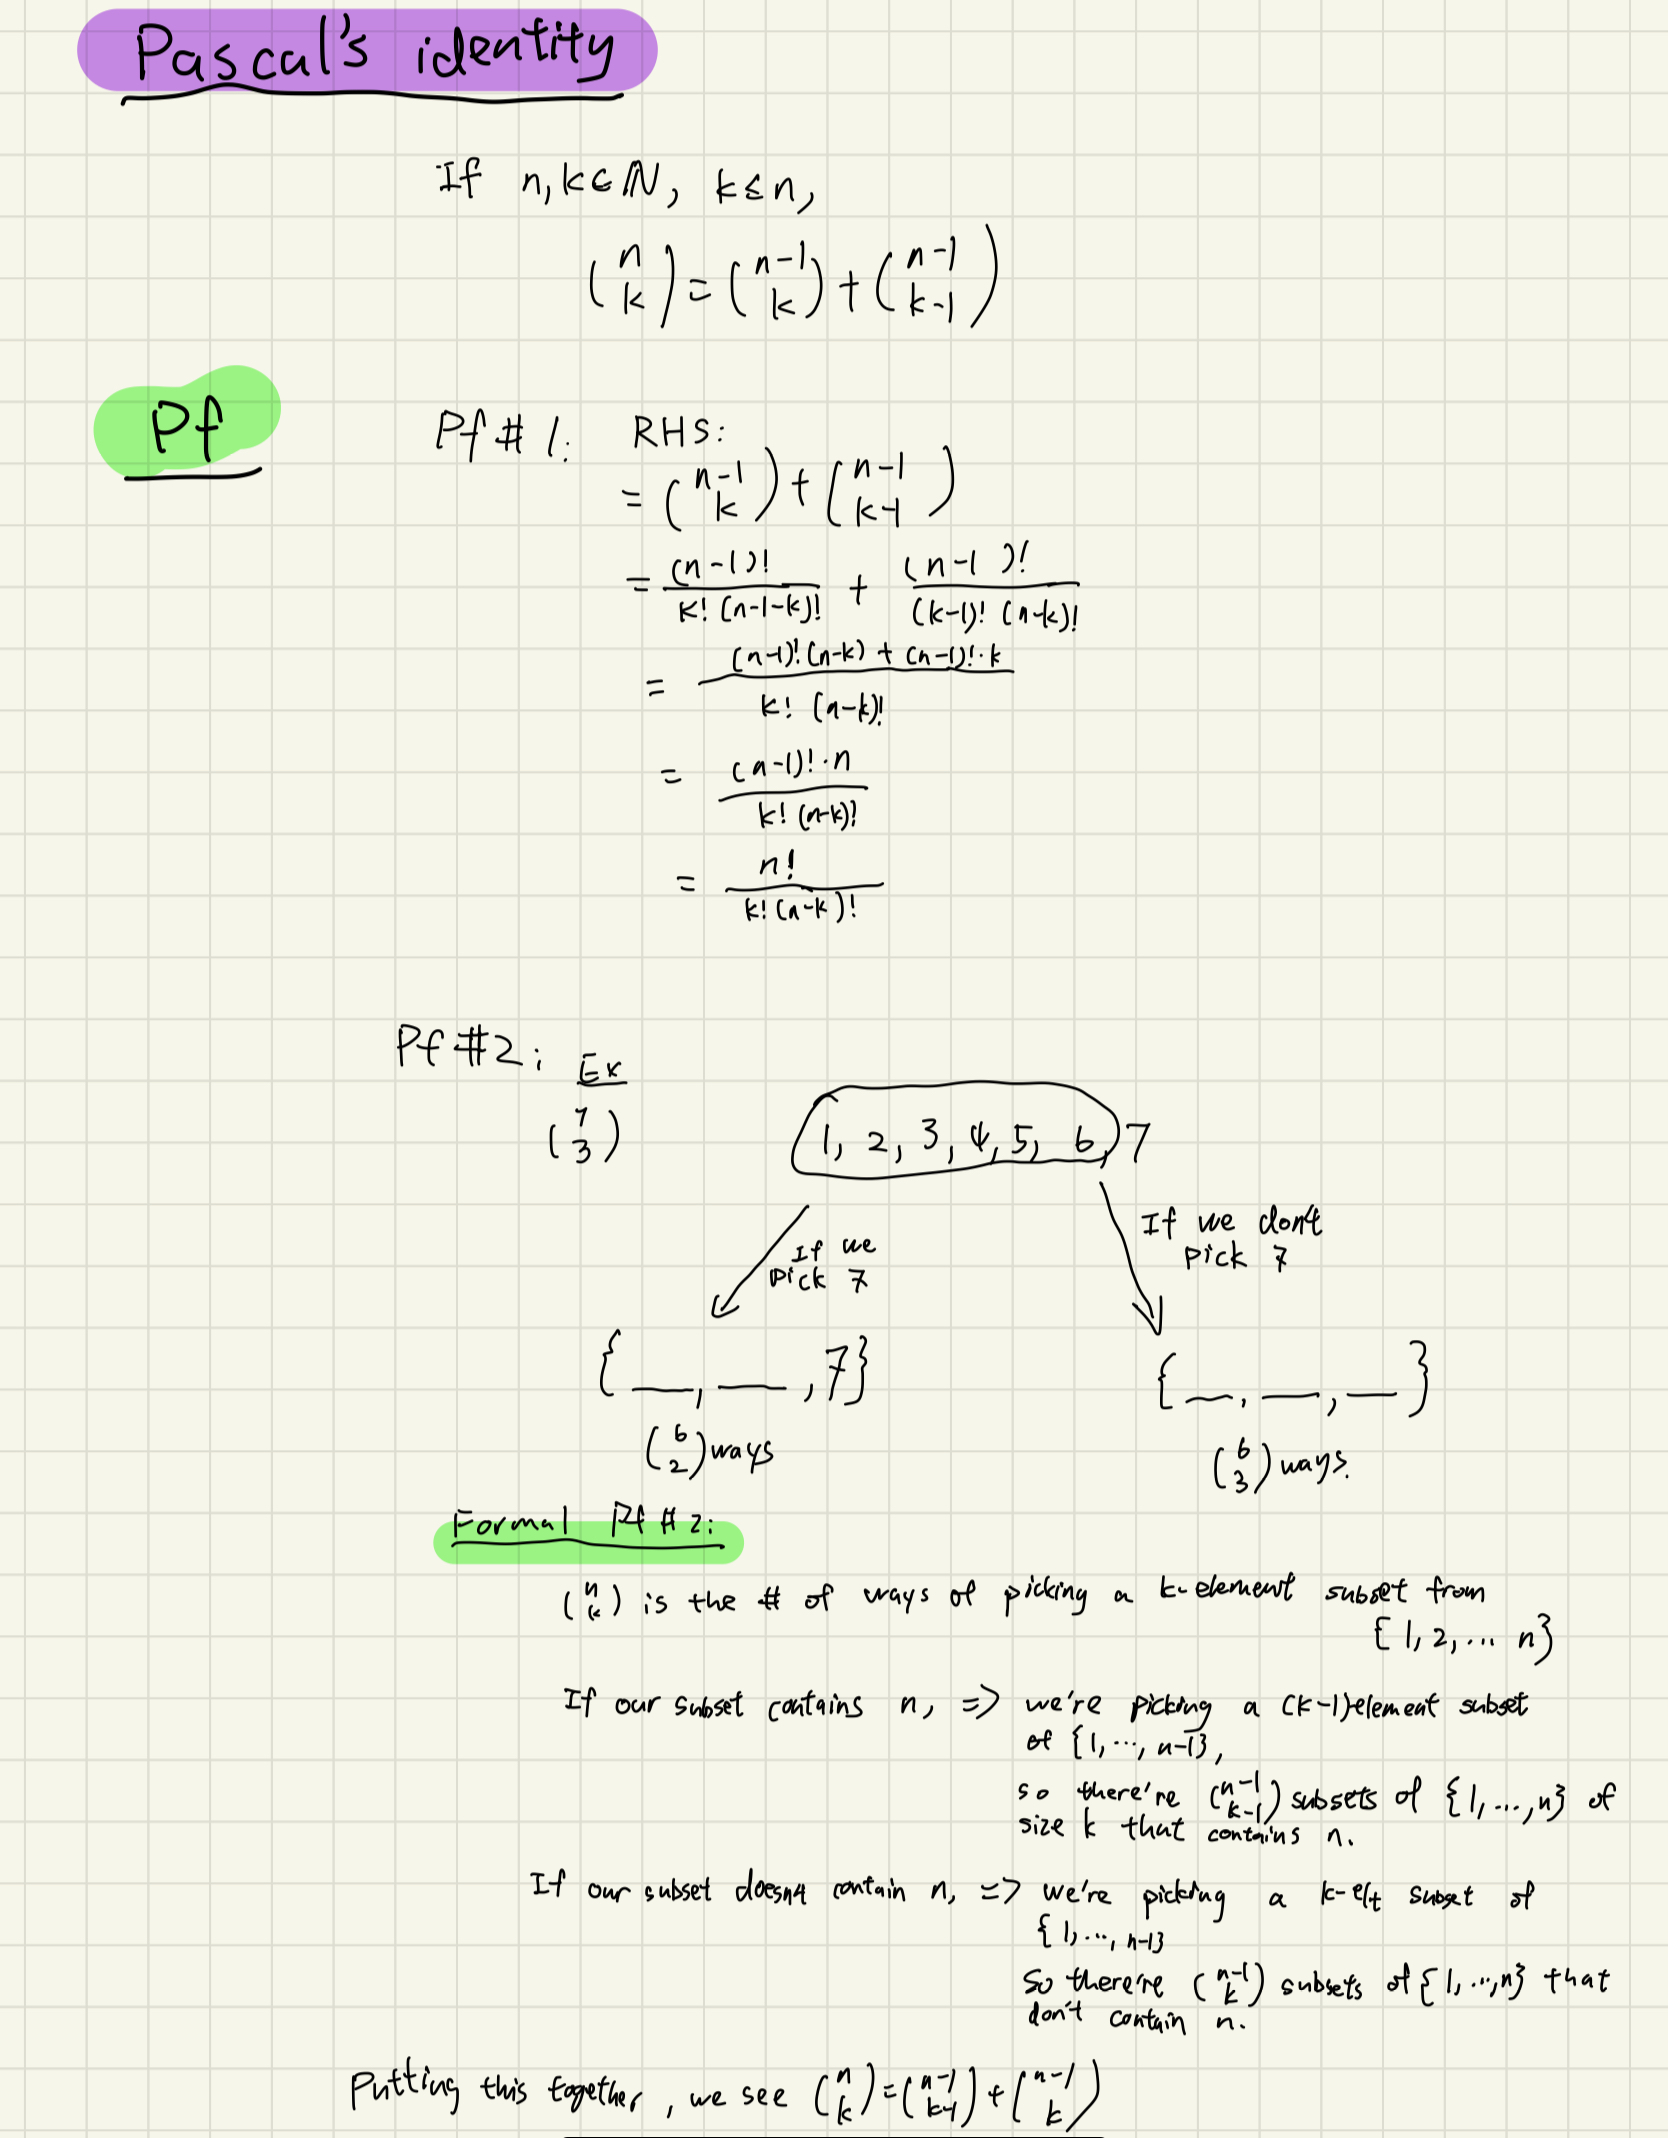 Pascal's identity
If n, k ∈ ℕ, k ≤ n,
(n k) = (n-1 k) + (n-1 k-1)
Pf
Pf # 1: RHS:
= (n-1 k) + (n-1 k-1)
= (n-1)! / k! (n-1-k)! + (n-1)! / (k-1)! (n-k)!
= (n-1)! (n-k) + (n-1)! · k / k! (n-k)!
= (n-1)! · n / k! (n-k)!
= n! / k! (n-k)!
Pf #2: Ex
(7 3) 1, 2, 3, 4, 5, 6, 7
If we
pick 7
If we don't
pick 7
{ __, __, 7}
{ __, __, __ }
(6 2) ways
(6 3) ways.
Formal Pf # 2:
(n k) is the # of ways of picking a k-element subset from
{1, 2, ... n}
If our subset contains n, => we're picking a (k-1)element subset
of {1, ..., n-1},
so there're (n-1 k-1) subsets of {1, ..., n} of
size k that contains n.
If our subset doesn't contain n, => we're picking a k-elt subset of
{1, ..., n-1}
So there're (n-1 k) subsets of {1, ..., n} that
don't contain n.
Putting this together, we see (n k) = (n-1 k-1) + (n-1 k)